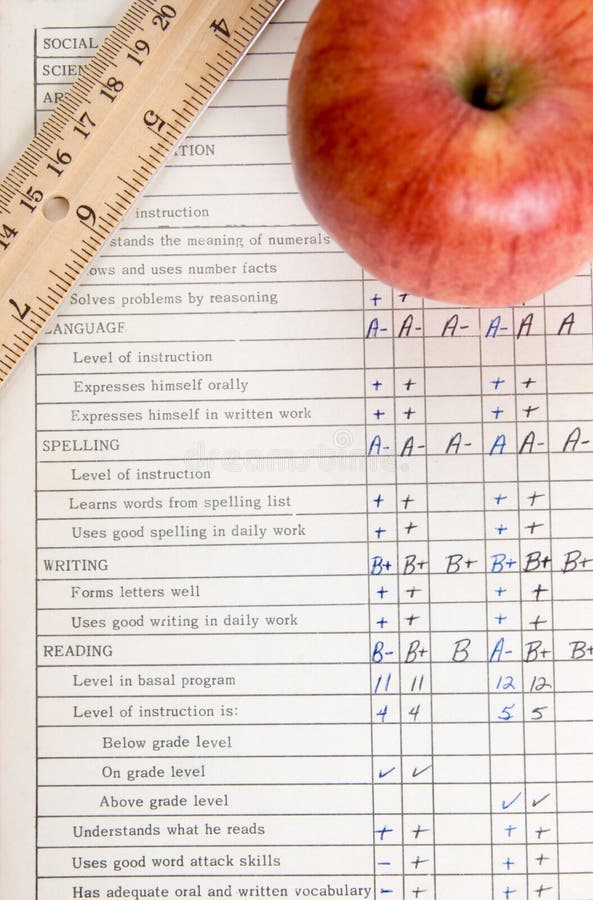 20 19 18 17 16 15 14
4 5 6 7
SOCIAL
instruction
stands the meaning of numerals
ows and uses number facts
Solves problems by reasoning + +
LANGUAGE A- A- A- A- A A
Level of instruction
Expresses himself orally + + + +
Expresses himself in written work + + + +
SPELLING A- A- A- A A- A-
Level of instruction
Learns words from spelling list + + + +
Uses good spelling in daily work + + + +
WRITING B+ B+ B+ B+ B+ B+
Forms letters well + + + +
Uses good writing in daily work + + + +
READING B- B+ B A- B+ B+
Level in basal program 11 11 12 12
Level of instruction is: 4 4 5 5
Below grade level
On grade level ✓ ✓
Above grade level ✓ ✓
Understands what he reads + + + +
Uses good word attack skills - + + +
Has adequate oral and written vocabulary - + + +
dreamstime